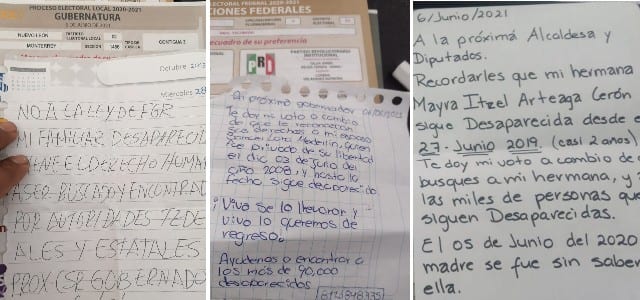 PROCESO ELECTORAL LOCAL 2020-2021
GUBERNATURA
NUEVO LEÓN
MONTERREY
SECCIÓN
CONTIGUA 2
Octubre
Miércoles 28
NO A LA LEY DE FGR
MI FAMILIAR DESAPARECID
TIENE EL DERECHO HUMAN
A SER BUSCADO Y ENCONTRAD
POR AUTORIDADES FEDE
ALES Y ESTATALES
PROX ESR GOBERNADO
ELECTORAL FEDERAL 2020-2021
CIONES FEDERALES
recuadro de su preferencia
PRI
PARTIDO REVOLUCIONARIO
INSTITUCIONAL
Al próximo gobernador
Te doy mi voto a cambio
de que le reconozcan
sus derechos a mi esposo
Medellin, quien
fue privado de su libertad
el día 03 de Junio del
año 2008, y hasta la
fecha sigue desaparecido
¡Vivo se lo llevaron y
vivo lo queremos de
regreso.
Ayudenos a encontrar a
los más de 90,000
desaparecidos
6/Junio/2021
A la próxima Alcaldesa y
Diputados.
Recordarles que mi hermana
Mayra Itzel Arteaga Cerón
sigue Desaparecida desde e
27-Junio 2019 (casi 2 años)
Te doy mi voto a cambio de
busques a mi hermana, y a
las miles de personas que
siguen Desaparecidas.
El 05 de Junio del 2020
madre se fue sin saber
ella.